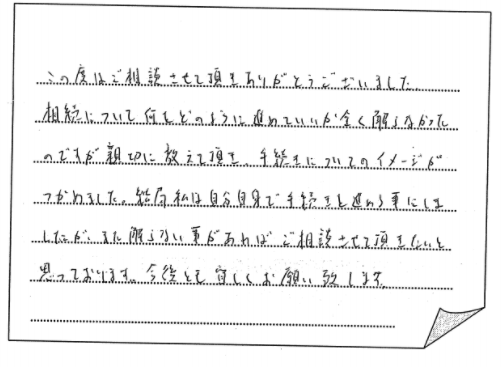 この度はご相談させて頂きありがとうございました
相続について何をどのように進めていいか全く解らなかった
のですが親切に教えて頂き、手続きについてのイメージが
つかめました。結局私は自分自身で手続きを進める事にしま
したが、また解らない事があればご相談させて頂きたいと
思っております。今後とも宜しくお願い致します。